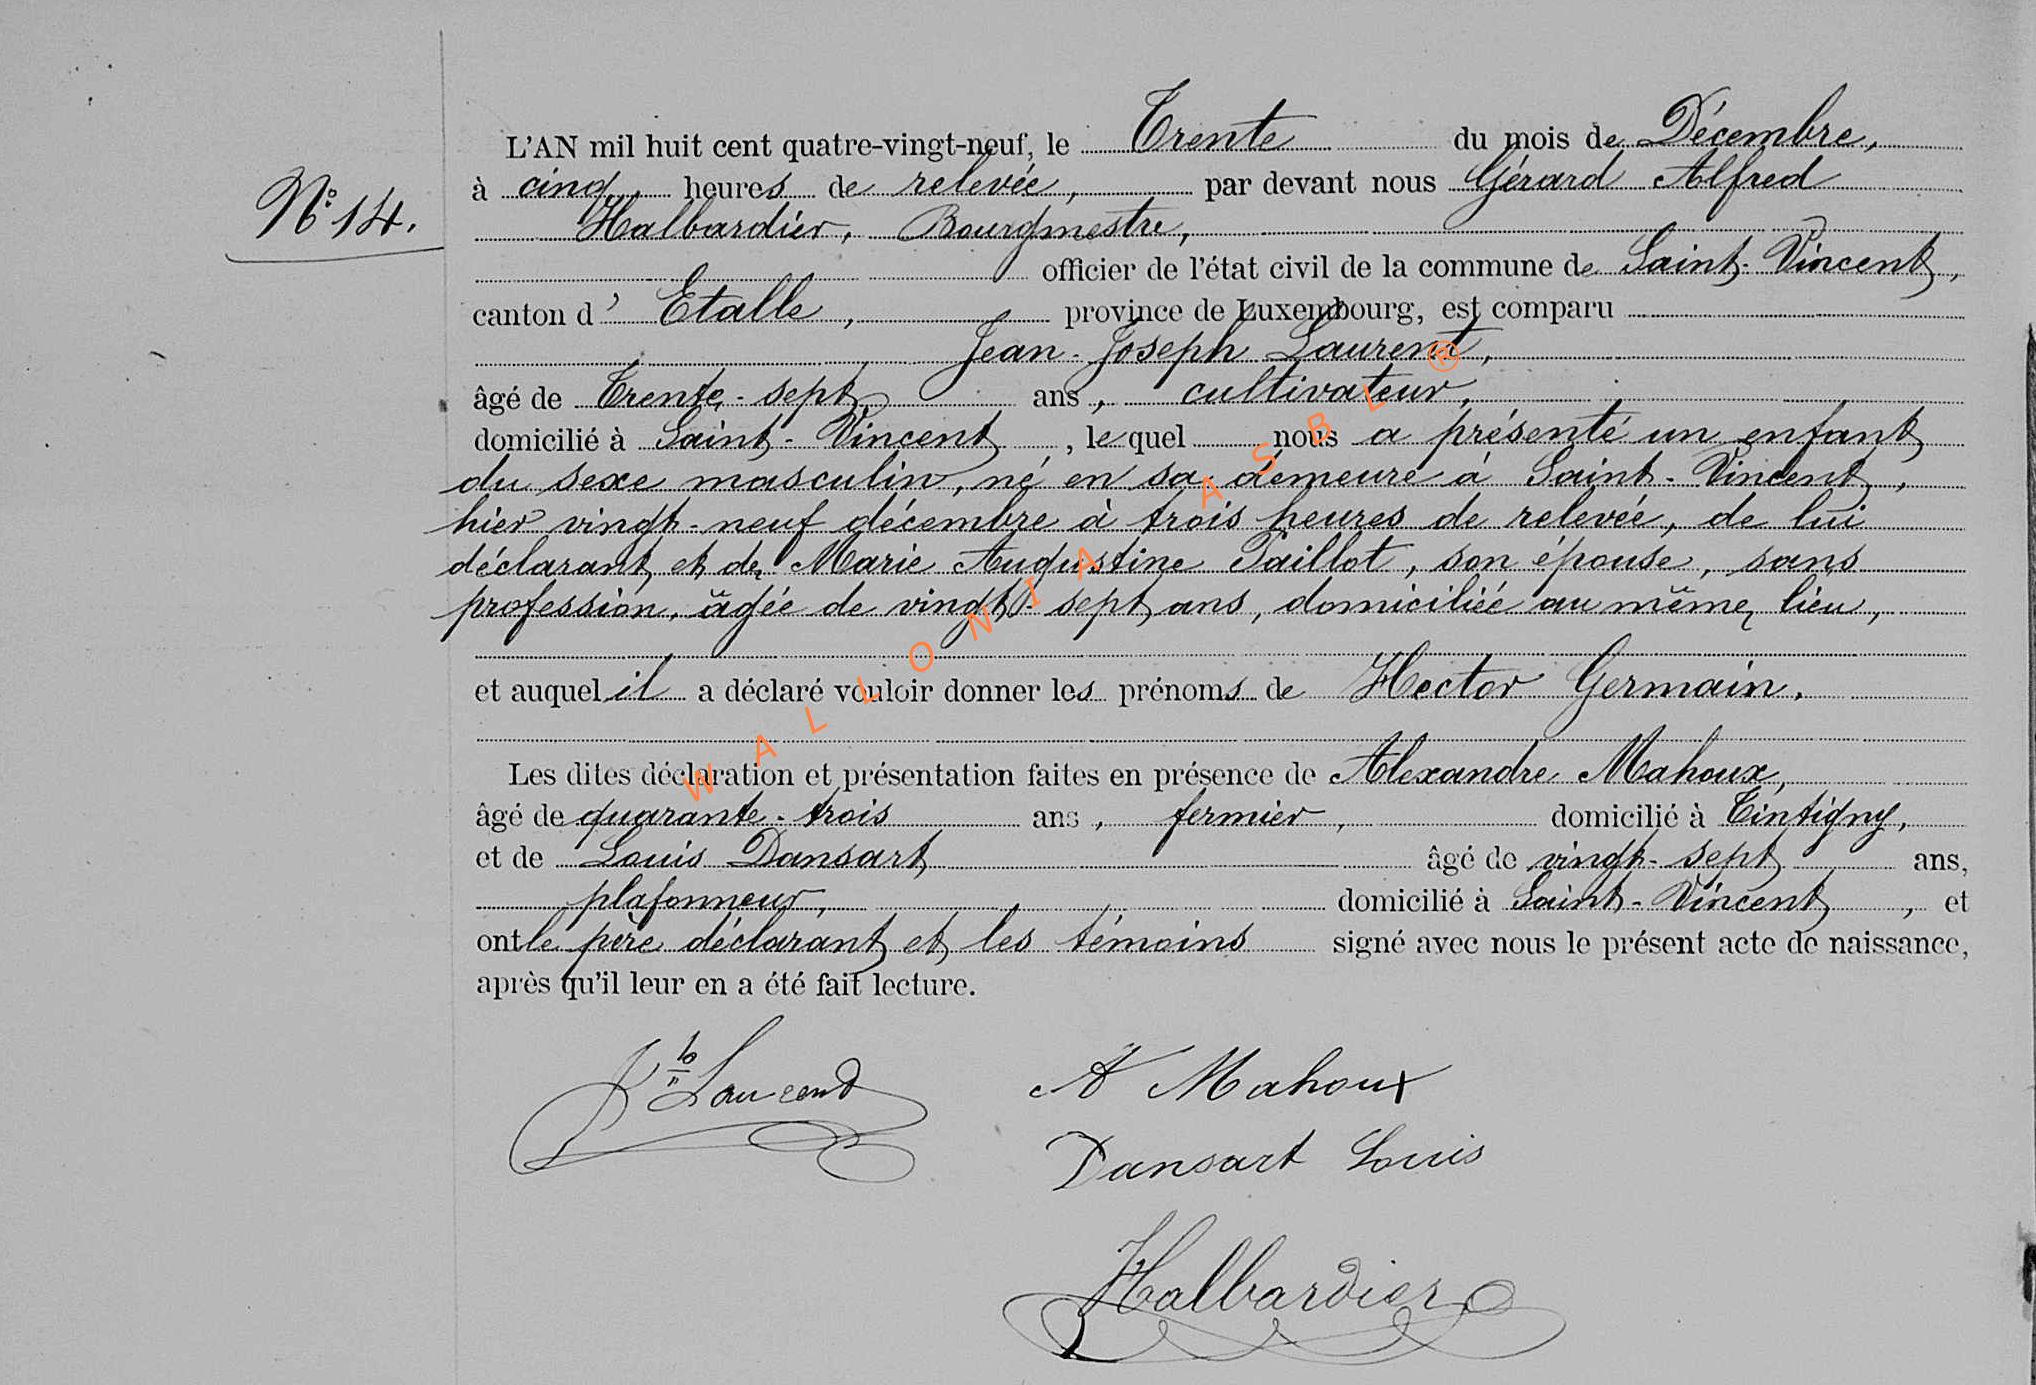 N° 14.
L'AN mil huit cent quatre-vingt-neuf, le Trente du mois de Décembre,
à cinq, heures de relevée, par devant nous Gérard Alfred
Halbardier, Bourgmestre,
officier de l'état civil de la commune de Saint-Vincent,
canton d' Etalle, province de Luxembourg, est comparu
Jean-Joseph Laurent,
âgé de Trente-sept ans, cultivateur,
domicilié à Saint-Vincent, lequel nous a présenté un enfant
du sexe masculin, né en sa demeure à Saint-Vincent,
hier vingt-neuf décembre à trois heures de relevée, de lui
déclarant et de Marie Augustine Paillot, son épouse, sans
profession, âgée de vingt-sept ans, domiciliée au même lieu,
et auquel il a déclaré vouloir donner les prénoms de Hector Germain.
Les dites déclaration et présentation faites en présence de Alexandre Mahoux,
âgé de quarante-trois ans, fermier, domicilié à Tintigny,
et de Louis Dansart âgé de vingt-sept ans,
plafonneur, domicilié à Saint-Vincent, et
ont le père déclarant et les témoins signé avec nous le présent acte de naissance,
après qu'il leur en a été fait lecture.
Laurent A Mahoux
Dansart Louis
Halbardier
WALLONIA ASBL ®